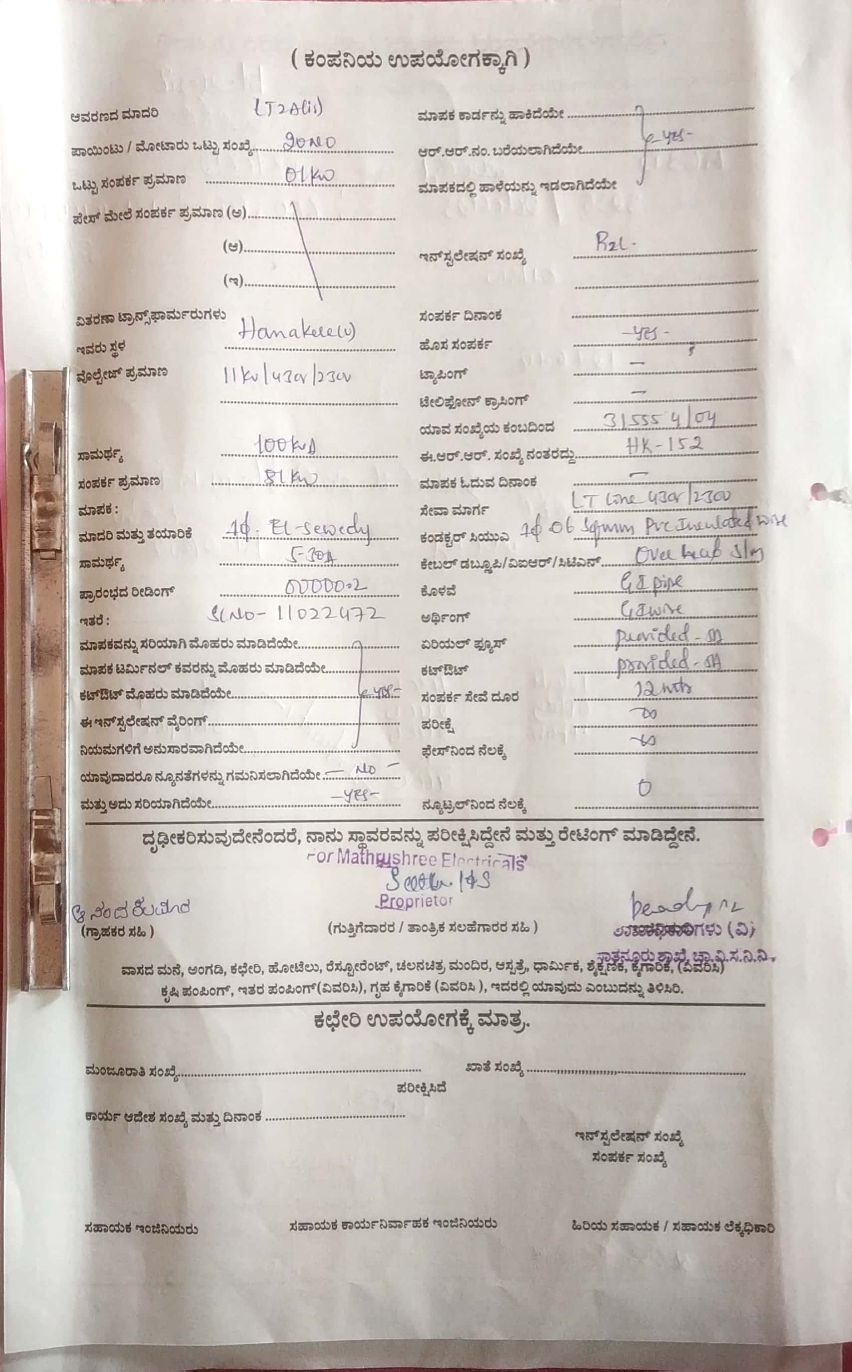 ( ಕಂಪನಿಯ ಉಪಯೋಗಕ್ಕಾಗಿ )
ಆವರಣದ ಮಾದರಿ
ಮಾಪಕ ಕಾರ್ಡನ್ನು ಹಾಕಿದೆಯೇ
ಪಾಯಿಂಟು / ಮೋಟಾರು ಒಟ್ಟು ಸಂಖ್ಯೆ
ಆರ್.ಆರ್.ನಂ. ಬರೆಯಲಾಗಿದೆಯೇ -yes-
ಒಟ್ಟು ಸಂಪರ್ಕ ಪ್ರಮಾಣ 01 KW
ಮಾಪಕದಲ್ಲಿ ಹಾಳೆಯನ್ನು ಇಡಲಾಗಿದೆಯೇ
ಫೇಸ್ ಮೇಲೆ ಸಂಪರ್ಕ ಪ್ರಮಾಣ (ಅ)
(ಆ)
(ಇ)
ಇನ್‌ಸ್ಟಲೇಷನ್ ಸಂಖ್ಯೆ
ವಿತರಣಾ ಟ್ರಾನ್ಸ್‌ಫಾರ್ಮರುಗಳು
ಸಂಪರ್ಕ ದಿನಾಂಕ
ಇವರು ಸ್ಥಳ Hanakere(v)
ಹೊಸ ಸಂಪರ್ಕ -yes-
ವೊಲ್ಟೇಜ್ ಪ್ರಮಾಣ 11KV/430V/230V
ಟ್ಯಾಪಿಂಗ್ —
ಟೇಲಿಫೋನ್ ಕ್ರಾಸಿಂಗ್ —
ಯಾವ ಸಂಖ್ಯೆಯ ಕಂಬದಿಂದ
ಸಾಮರ್ಥ್ಯ 100KVA
ಈ.ಆರ್.ಆರ್. ಸಂಖ್ಯೆ ನಂತರದ್ದು HK-152
ಸಂಪರ್ಕ ಪ್ರಮಾಣ 81KW
ಮಾಪಕ ಓದುವ ದಿನಾಂಕ —
ಮಾಪಕ :
ಸೇವಾ ಮಾರ್ಗ LT line 430V/230V
ಮಾದರಿ ಮತ್ತು ತಯಾರಿಕೆ 1ϕ. El-sewedy
ಕಂಡಕ್ಟರ್ ಸಿಯುವಿ 1ϕ 06 Sqmm Pvc Insulated wire
ಸಾಮರ್ಥ್ಯ 5-30A
ಕೇಬಲ್ ಡಬ್ಲೂಪಿ/ವಿಐಆರ್/ಸಿಟಿಎನ್
ಪ್ರಾರಂಭದ ರೀಡಿಂಗ್ 000000.2
ಕೊಳವೆ GI pipe
ಇತರೆ : Sl No - 11022472
ಅರ್ಥಿಂಗ್ GI wire
ಮಾಪಕವನ್ನು ಸರಿಯಾಗಿ ಮೊಹರು ಮಾಡಿದೆಯೇ
ಏರಿಯಲ್ ಫ್ಯೂಸ್ provided
ಮಾಪಕ ಟರ್ಮಿನಲ್ ಕವರನ್ನು ಮೊಹರು ಮಾಡಿದೆಯೇ
ಕಟ್‌ಔಟ್ provided
ಕಟ್‌ಔಟ್ ಮೊಹರು ಮಾಡಿದೆಯೇ -yes-
ಸಂಪರ್ಕ ಸೇವೆ ದೂರ 12 mts
ಈ ಇನ್‌ಸ್ಟಲೇಷನ್ ವೈರಿಂಗ್
ಪರೀಕ್ಷೆ ∞
ನಿಯಮಗಳಿಗೆ ಅನುಸಾರವಾಗಿದೆಯೇ
ಫೇಸ್‌ನಿಂದ ನೆಲಕ್ಕೆ ∞
ಯಾವುದಾದರೂ ನ್ಯೂನತೆಗಳನ್ನು ಗಮನಿಸಲಾಗಿದೆಯೇ — NO —
ಮತ್ತು ಅದು ಸರಿಯಾಗಿದೆಯೇ -yes-
ನ್ಯೂಟ್ರಲ್‌ನಿಂದ ನೆಲಕ್ಕೆ 0
ದೃಢೀಕರಿಸುವುದೇನೆಂದರೆ, ನಾನು ಸ್ಥಾವರವನ್ನು ಪರೀಕ್ಷಿಸಿದ್ದೇನೆ ಮತ್ತು ರೇಟಿಂಗ್ ಮಾಡಿದ್ದೇನೆ.
For Mathrushree Electricals
Proprietor
(ಗ್ರಾಹಕರ ಸಹಿ )
(ಗುತ್ತಿಗೆದಾರರ / ತಾಂತ್ರಿಕ ಸಲಹೆಗಾರರ ಸಹಿ )
ವಾಸದ ಮನೆ, ಅಂಗಡಿ, ಕಛೇರಿ, ಹೋಟೆಲು, ರೆಸ್ಟೋರೆಂಟ್, ಚಲನಚಿತ್ರ ಮಂದಿರ, ಆಸ್ಪತ್ರೆ, ಧಾರ್ಮಿಕ, ಶೈಕ್ಷಣಿಕ, ಕೈಗಾರಿಕೆ, (ವಿವರಿಸಿ)
ಕೃಷಿ ಪಂಪಿಂಗ್, ಇತರ ಪಂಪಿಂಗ್(ವಿವರಿಸಿ), ಗೃಹ ಕೈಗಾರಿಕೆ (ವಿವರಿಸಿ ), ಇದರಲ್ಲಿ ಯಾವುದು ಎಂಬುದನ್ನು ತಿಳಿಸಿರಿ.
ಕಛೇರಿ ಉಪಯೋಗಕ್ಕೆ ಮಾತ್ರ.
ಮಂಜೂರಾತಿ ಸಂಖ್ಯೆ
ಖಾತೆ ಸಂಖ್ಯೆ
ಪರೀಕ್ಷಿಸಿದೆ
ಕಾರ್ಯ ಆದೇಶ ಸಂಖ್ಯೆ ಮತ್ತು ದಿನಾಂಕ
ಇನ್‌ಸ್ಟಲೇಷನ್ ಸಂಖ್ಯೆ
ಸಂಪರ್ಕ ಸಂಖ್ಯೆ
ಸಹಾಯಕ ಇಂಜಿನಿಯರು
ಸಹಾಯಕ ಕಾರ್ಯನಿರ್ವಾಹಕ ಇಂಜಿನಿಯರು
ಹಿರಿಯ ಸಹಾಯಕ / ಸಹಾಯಕ ಲೆಕ್ಕಧಿಕಾರಿ